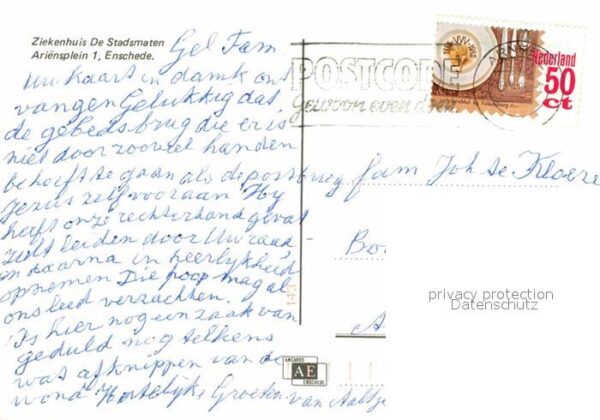 Ziekenhuis De Stadsmaten
Ariënsplein 1, Enschede.
Gel Fam
Uw kaart in dank ont
vangen Gelukkig dat
de gebedsbrug die er is
niet door zooveel handen
behoeft te gaan als de postbrug
Jezus zelf vooraan "Hij
heeft onze rechterhand gevat
zult leiden door Uw raad
en daarna in heerlijkheid
opnemen Die hoop mag al
ons leed verzachten.
't Is hier nog een zaak van
geduld nog telkens
wat afknippen van de
wond Hartelijke Groeten van Aaltje
POSTCODE
gewoon even doen
Nederland
50
ct
fam Joh te Kloeze
Bo
A
privacy protection
Datenschutz
143
ANCARDS
AE
ENSCHEDE